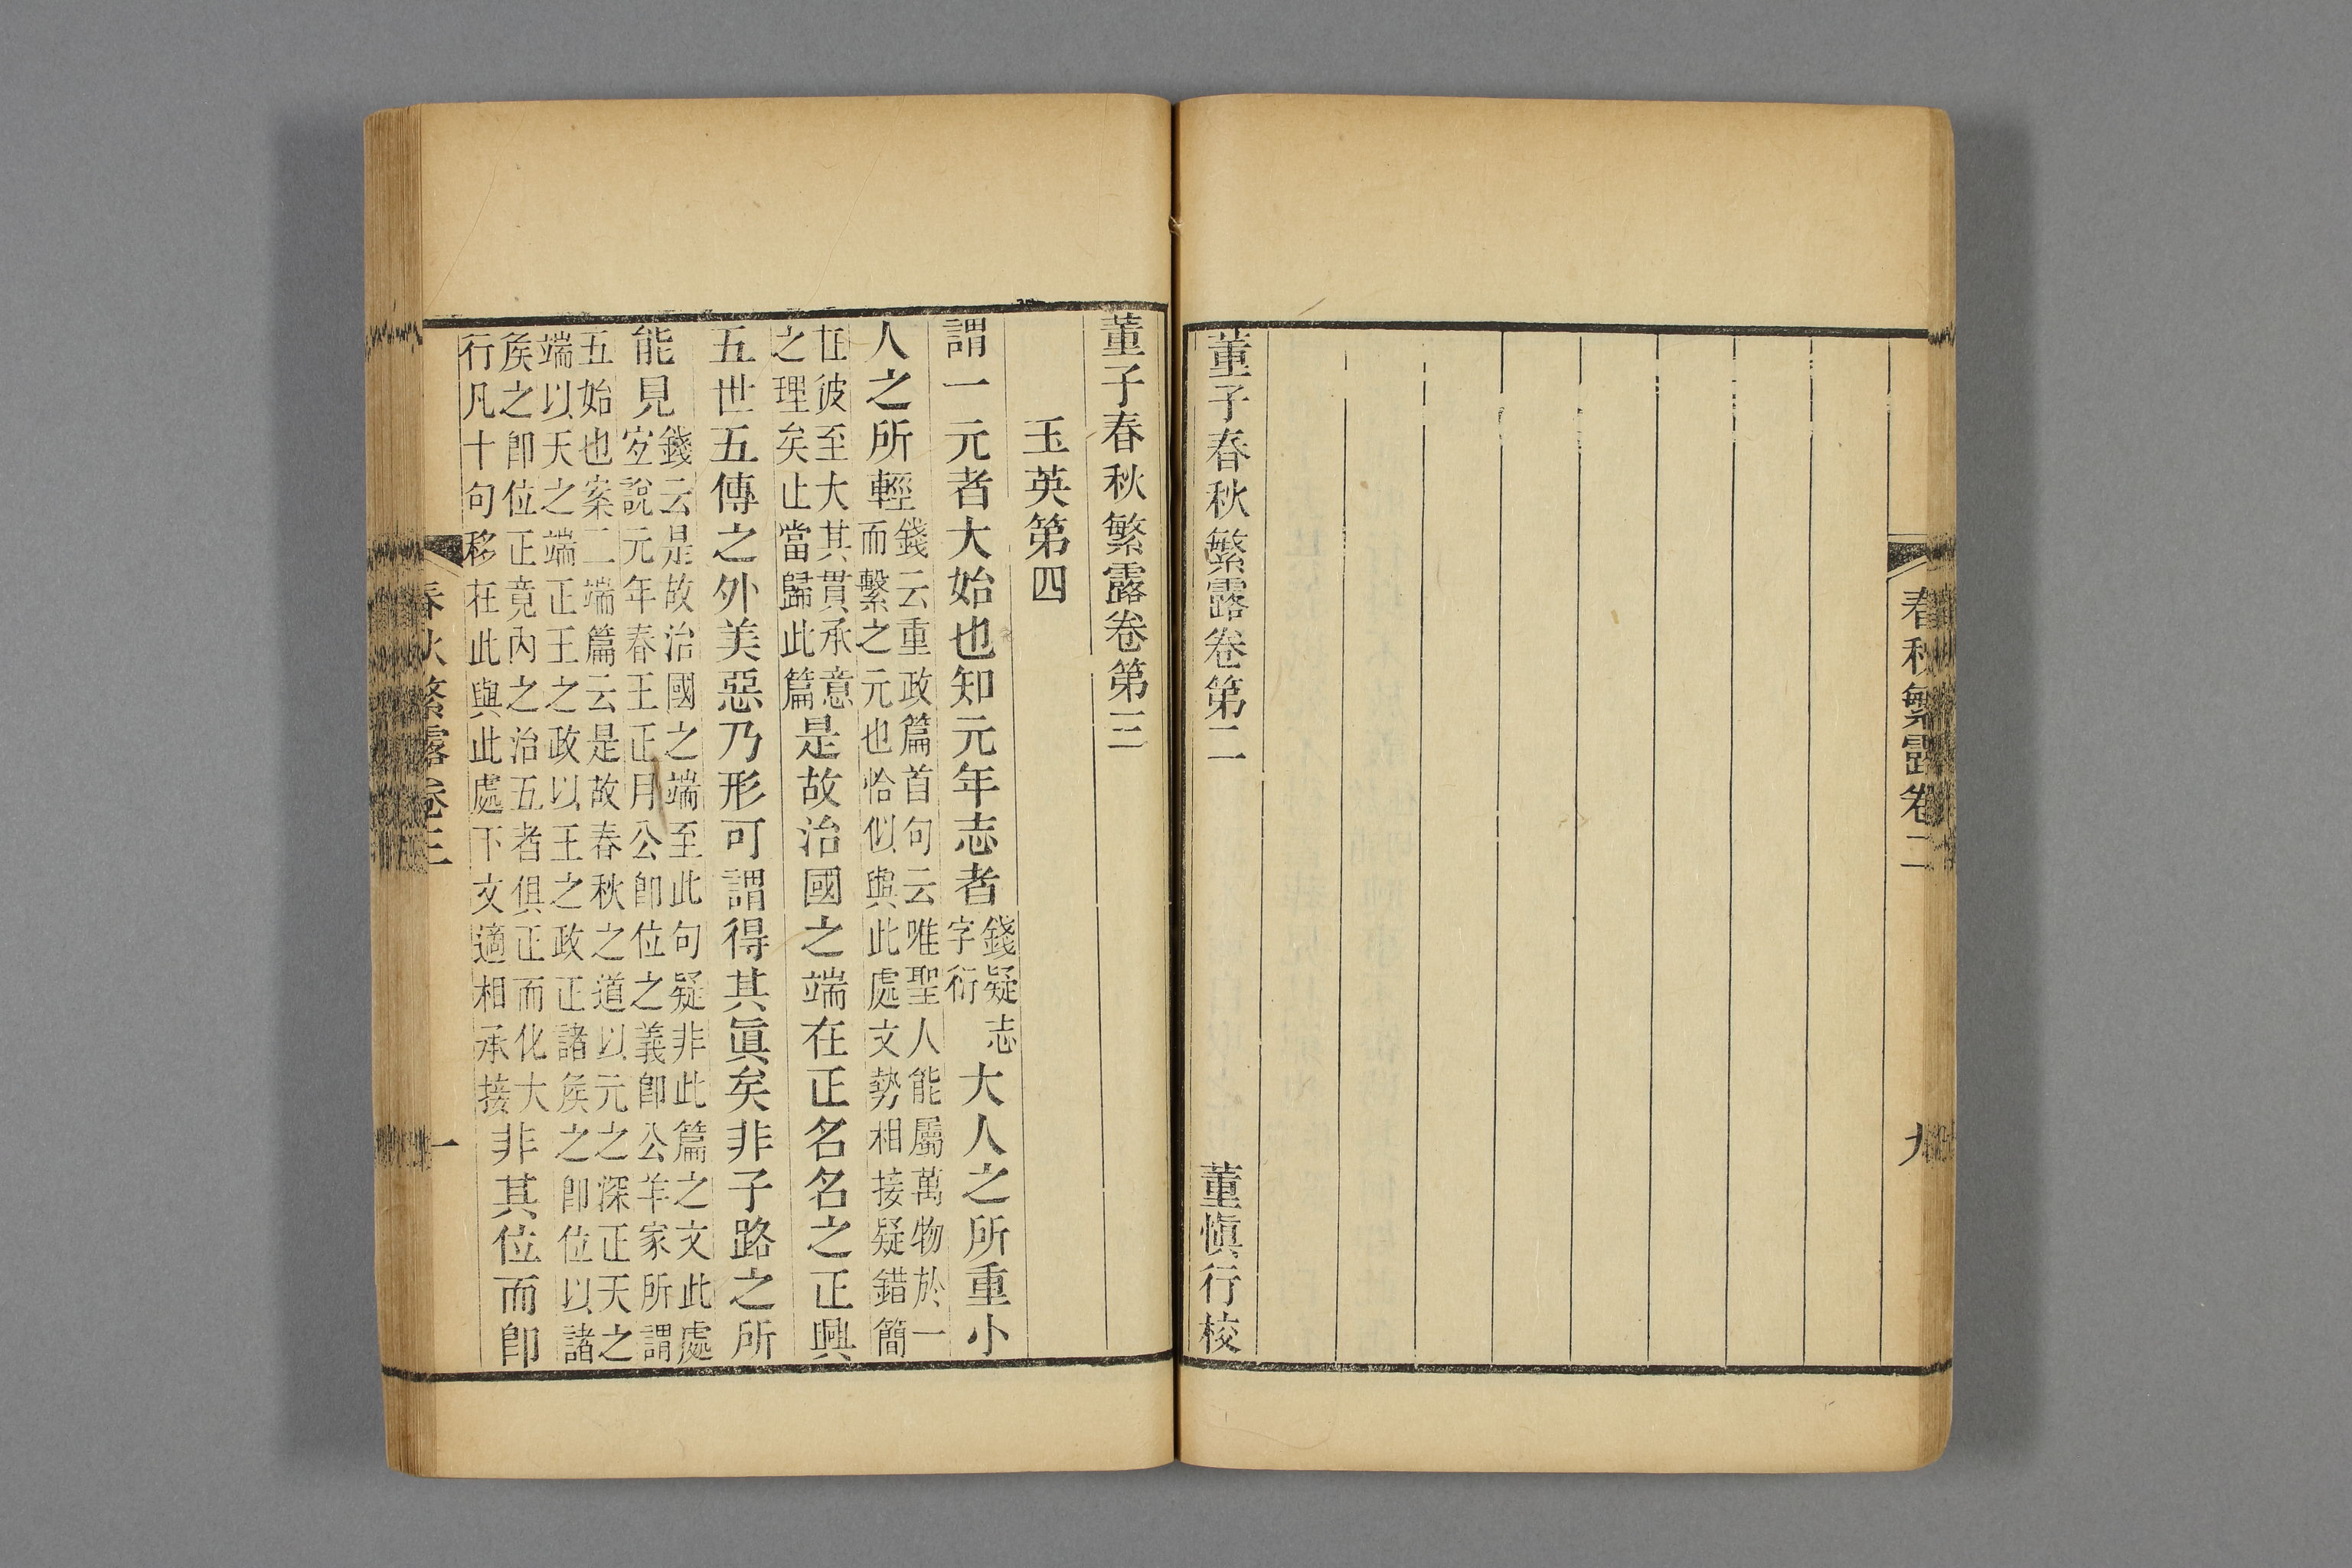 春秋繁露卷二
九
董子春秋繁露卷第二　董愼行校
董子春秋繁露卷第三
玉英第四
謂一元者大始也知元年志者錢疑志字衍大人之所重小
人之所輕錢云重政篇首句云唯聖人能屬萬物於一而繫之元也恰似與此處文勢相接疑錯簡
在彼至大其貫承意之理矣止當歸此篇是故治國之端在正名名之正興
五世五傳之外美惡乃形可謂得其眞矣非子路之所
能見錢云是故治國之端至此句疑非此篇之文此處宐說元年春王正月公卽位之義卽公羊家所謂
五始也案二端篇云是故春秋之道以元之深正天之端以天之端正王之政以王之政正諸矦之卽位以諸
矦之卽位正竟內之治五者俱正而化大行凡十句移在此與此處下文適相承接非其位而卽
春秋繁露卷三
一